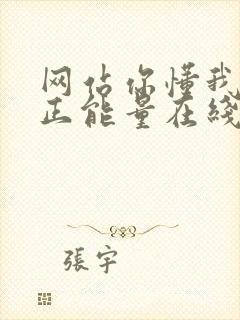 网站你懂我
正能量在线
張宇